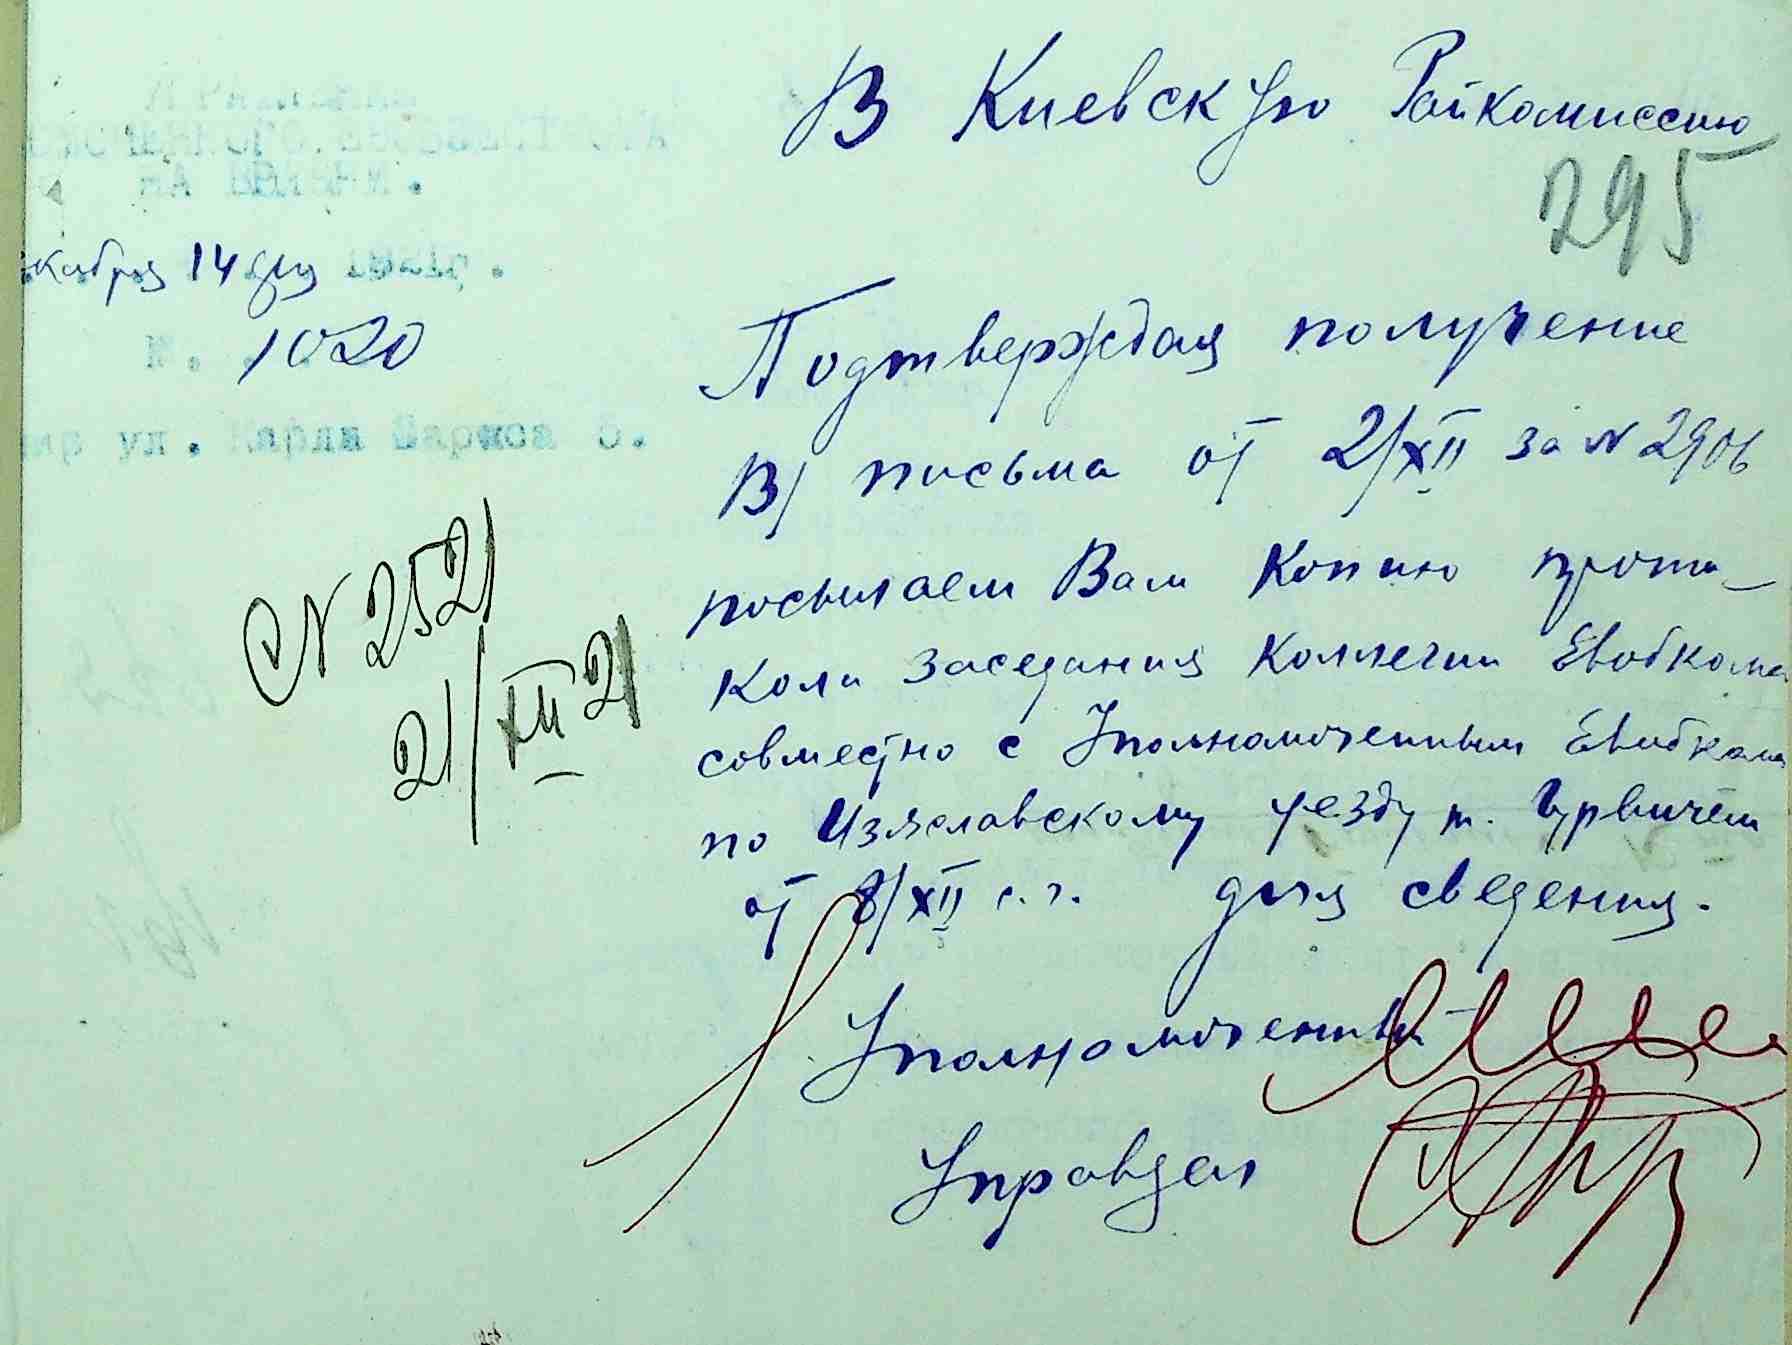 В Киевскую Райкомиссию
295
НА
кабря 14 дня 1921г.
№. 1020
ул. Карла Маркса 5.
Подтверждая получение
В/ письма от 2/XII за № 2906
посылаем Вам копию прото-
кола заседания Коллегии Евобкома
совместно с Уполномоченным Евобкома
по Изяславскому уезду т. Гурвичем
от 8/XII с.г. для сведения.
№ 2521
21/XII 21
Уполномоченный
Управдел